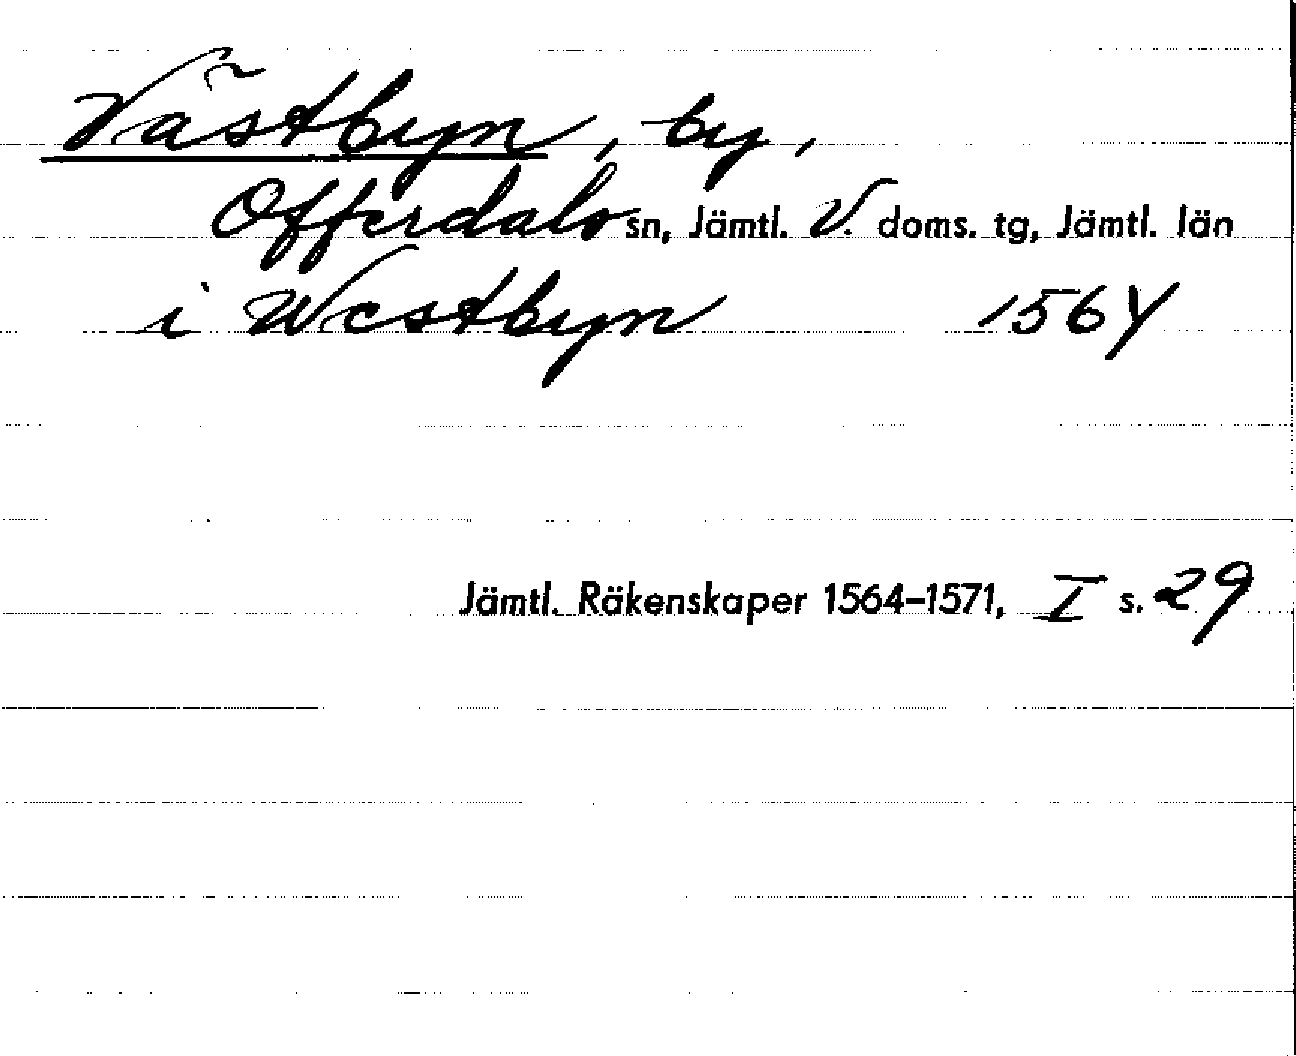 Västbyn, by,
Offerdals sn, Jämtl. V. doms. tg, Jämtl. län
i Westbyn 1564
Jämtl. Räkenskaper 1564-1571, I s. 29